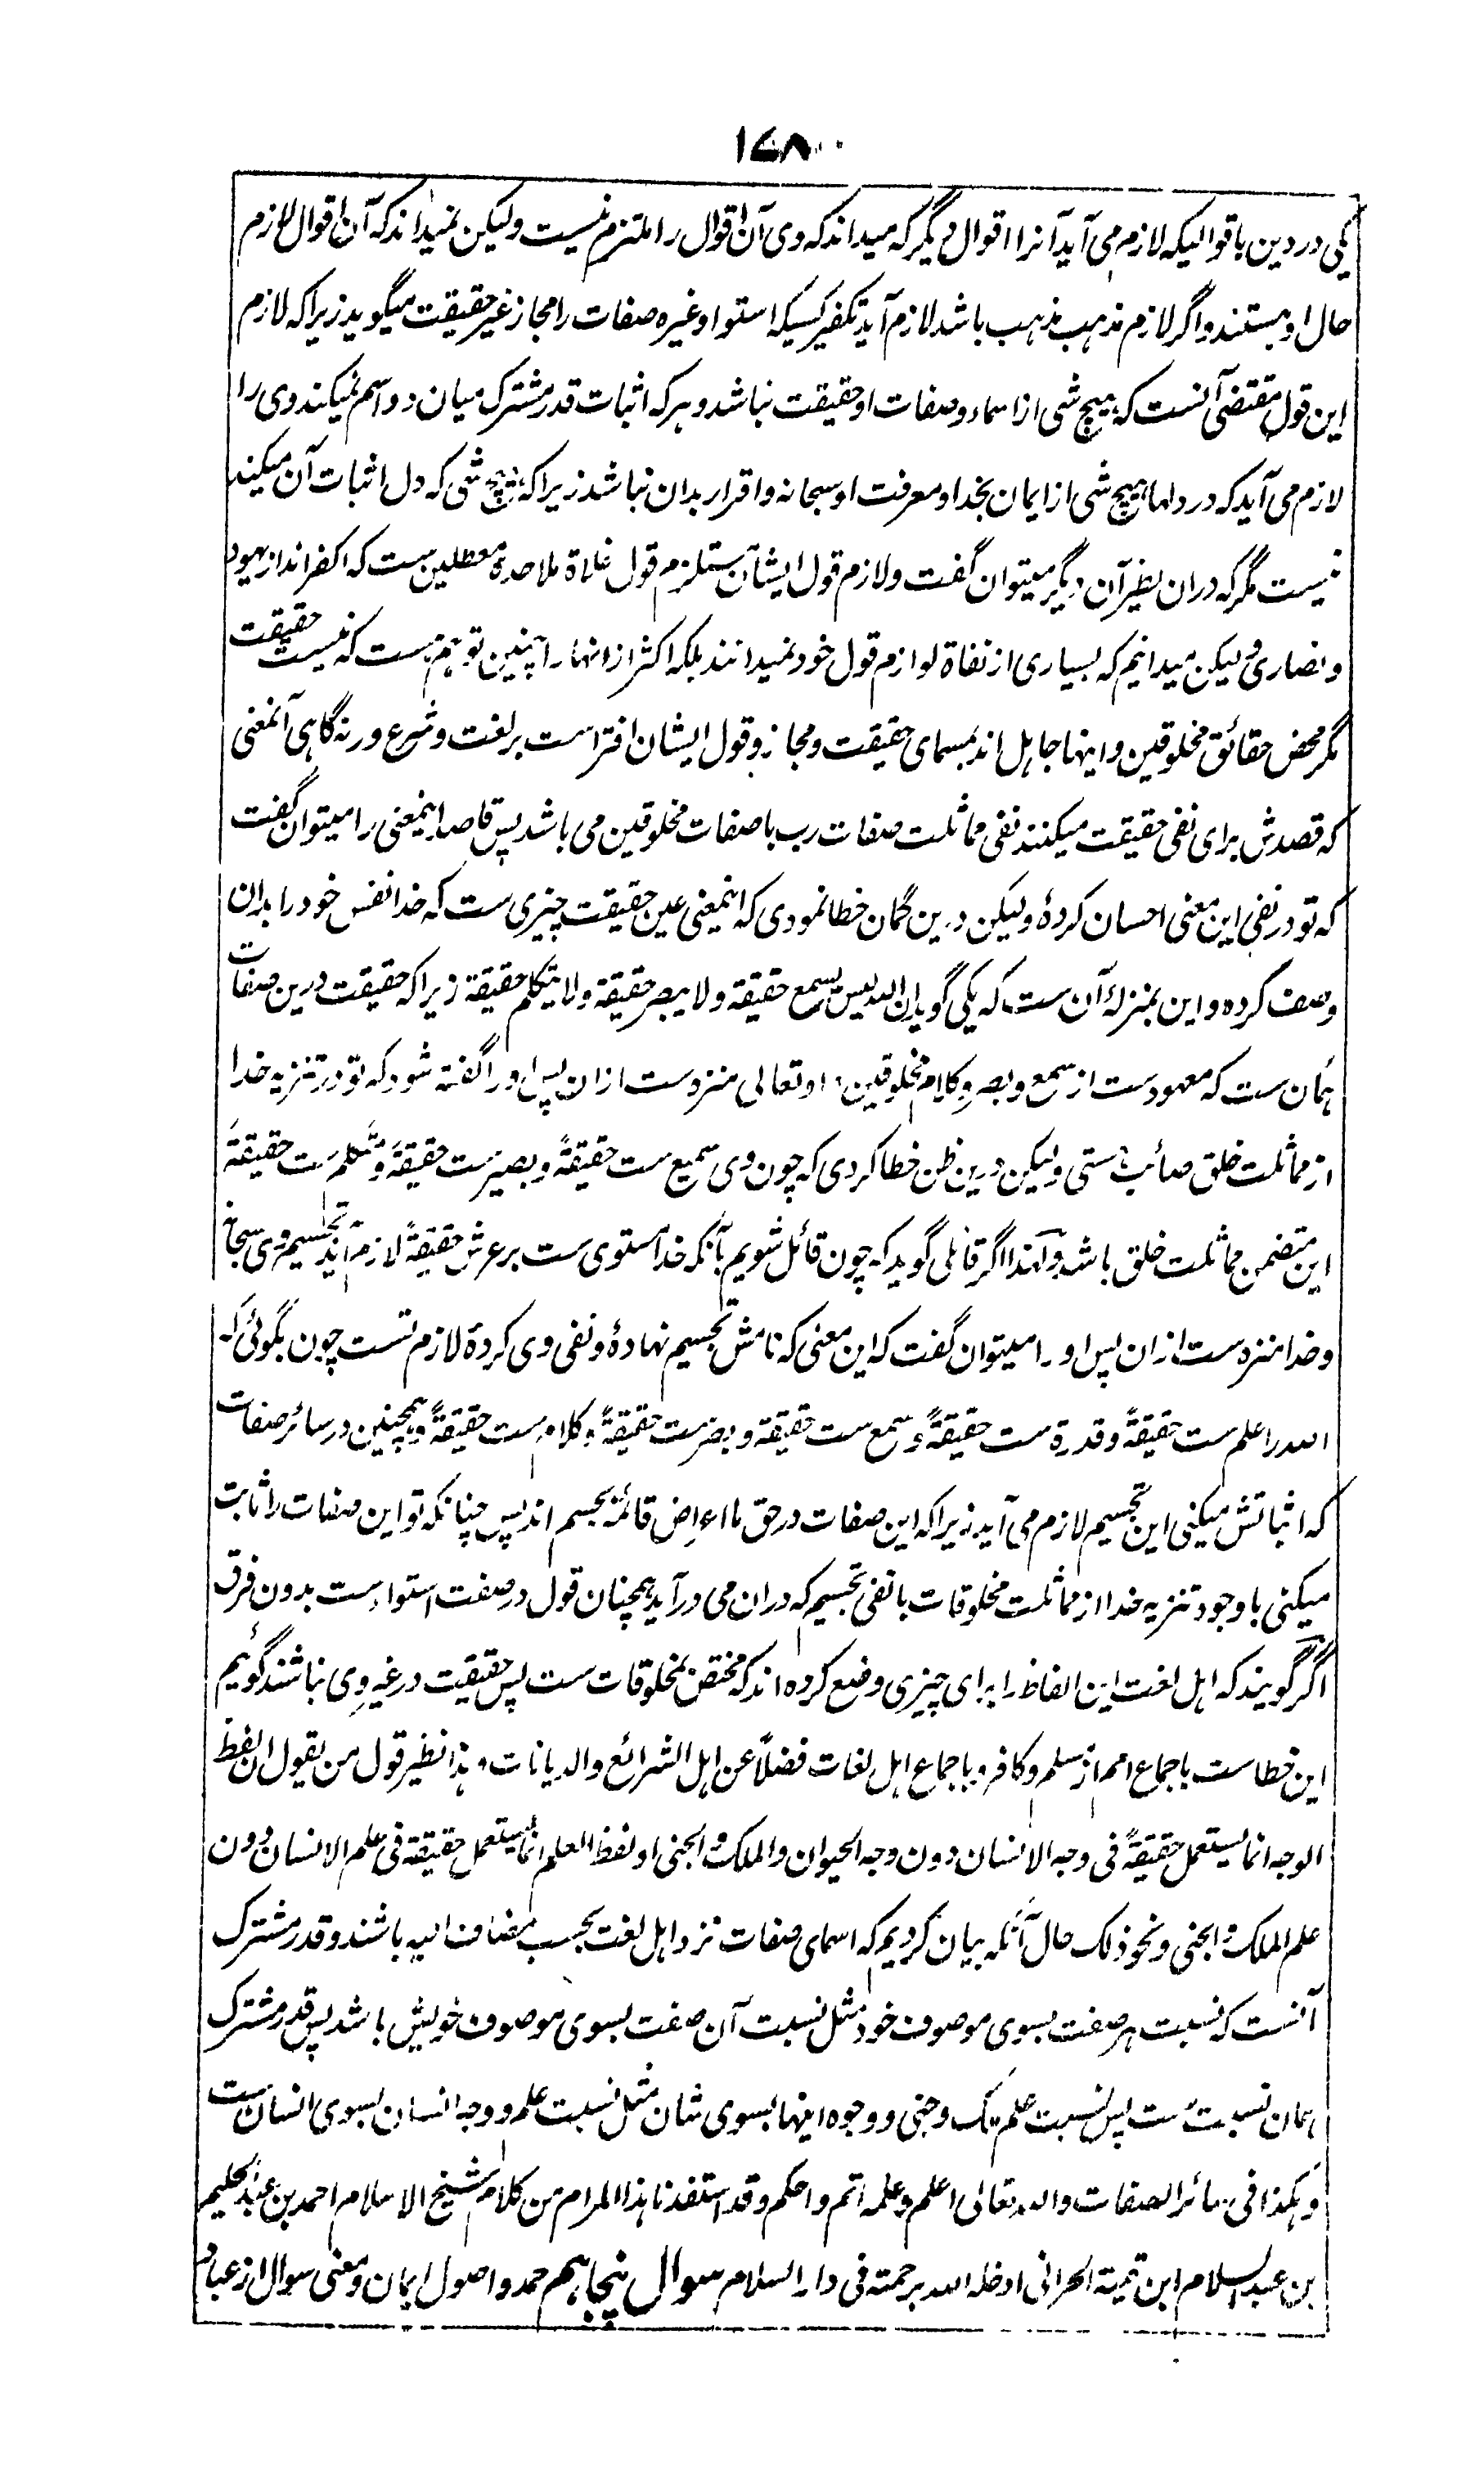 ۱۷۸
یکی در دین باقوالیکه لازم می آید آنرا اقوال دیگر که میداند که وی آن اقوال را ملتزم نیست ولیکن نمیداند که آن اقوال لازم
حال او هستند و اگر لازم مذهب مذهب باشد لازم آید تکفیر کسیکه استوا و غیره صفات را مجاز غیر حقیقت میگوید زیرا که لازم
این قول مقتضی آنست که هیچ شی از اسماء و صفات او حقیقت نباشد و هر که اثبات قدر مشترک میان دو اسم نمیکند وی را
لازم می آید که در دلها هیچ شی از ایمان بخدا و معرفت او سبحانه و اقرار بدان نباشد زیرا که هیچ شی که دل اثبات آن میکند
نیست مگر که دران نظیر آن دیگر میتوان گفت و لازم قول ایشان مستلزم قول غلاة ملاحدۀ معطلین ست که اکفر اند از یهود
و نصاری ولیکن میدانیم که بسیاری از نفاة لوازم قول خود نمیدانند بلکه اکثر ازانها را چنین توهم ست که نیست حقیقت
مگر محض حقائق مخلوقین و اینها جاهل اند بمسمای حقیقت و مجاز و قول ایشان افتراست بر لغت و شرع ورنه گاهی آنمعنی
که قصدش برای نفی حقیقت میکنند نفی مماثلت صفات رب با صفات مخلوقین می باشد پس قاصد اینمعنی را میتوان گفت
که تو در نفی این معنی احسان کردۀ ولیکن درین گمان خطا نمودی که اینمعنی عین حقیقت چیزی ست که خدا نفس خود را بدان
وصف کرده و این بمنزلۀ آن ست که یکی گوید ان الله لیس یسمع حقیقة ولا یبصر حقیقة ولا یتکلم حقیقة زیرا که حقیقت درین صفات
همان ست که معهود ست از سمع و بصر و کلام مخلوقین و او تعالی منزه ست ازان پس او را گفته شود که تو در تنزیه خدا
از مماثلت خلق صائب هستی ولیکن درین ظن خطا کردی که چون وی سمیع ست حقیقةً و بصیر ست حقیقةً و متکلم ست حقیقةً
این متضمن مماثلت خلق باشد ولهذا اگر قائلی گوید که چون قائل شویم بآنکه خدا مستوی ست بر عرش حقیقةً لازم آید تجسیم وی سبحانه
و خدا منزه ست ازان پس او را میتوان گفت که این معنی که نامش تجسیم نهادۀ و نفی وی کردۀ لازم تست چون بگوئی که
الله را علم ست حقیقةً و قدرة ست حقیقةً و سمع ست حقیقة و بصر ست حقیقةً و کلام ست حقیقةً و همچنین در سائر صفات
که اثباتش میکنی این تجسیم لازم می آید زیرا که این صفات در حق ما اعراض قائمه بجسم اند پس چنانکه تو این صفات را ثابت
میکنی با وجود تنزیه خدا از مماثلت مخلوقات با نفی تجسیم که دران می در آید همچنان قول در صفت استواست بدون فرق
اگر گویند که اهل لغت این الفاظ را برای چیزی وضع کرده اند که مختص بمخلوقات ست پس حقیقت در غیر وی نباشند گوئیم
این خطاست باجماع امم از مسلم و کافر و باجماع اهل لغات فضلاً عن اهل الشرائع والدیانات و هذا نظیر قول من یقول ان لفظ
الوجه انما یستعمل حقیقةً فی وجه الانسان دون وجه الحیوان والملک والجنی او لفظ العلم انما یستعمل حقیقة فی علم الانسان دون
علم الملک والجنی و نحو ذلک حال آنکه بیان کردیم که اسمای صفات نزد اهل لغت بحسب مضاف الیه باشند و قدر مشترک
آنست که نسبت هر صفت بسوی موصوف خود مثل نسبت آن صفت بسوی موصوف خویش باشد پس قدر مشترک
همان نسبت ست پس نسبت علم ملک و جنی و وجوه اینها بسوی شان مثل نسبت علم و وجه انسان بسوی انسان ست
و هکذا فی سائر الصفات والله تعالی اعلم و علمه اتم و احکم وقد استفدنا هذا المرام من کلام شیخ الاسلام احمد بن عبد الحلیم
بن عبد السلام ابن تیمیة الحرانی ادخله الله برحمته فی دار السلام سوال پنجاهم حمد و اصول ایمان و معنی سوال از عباد